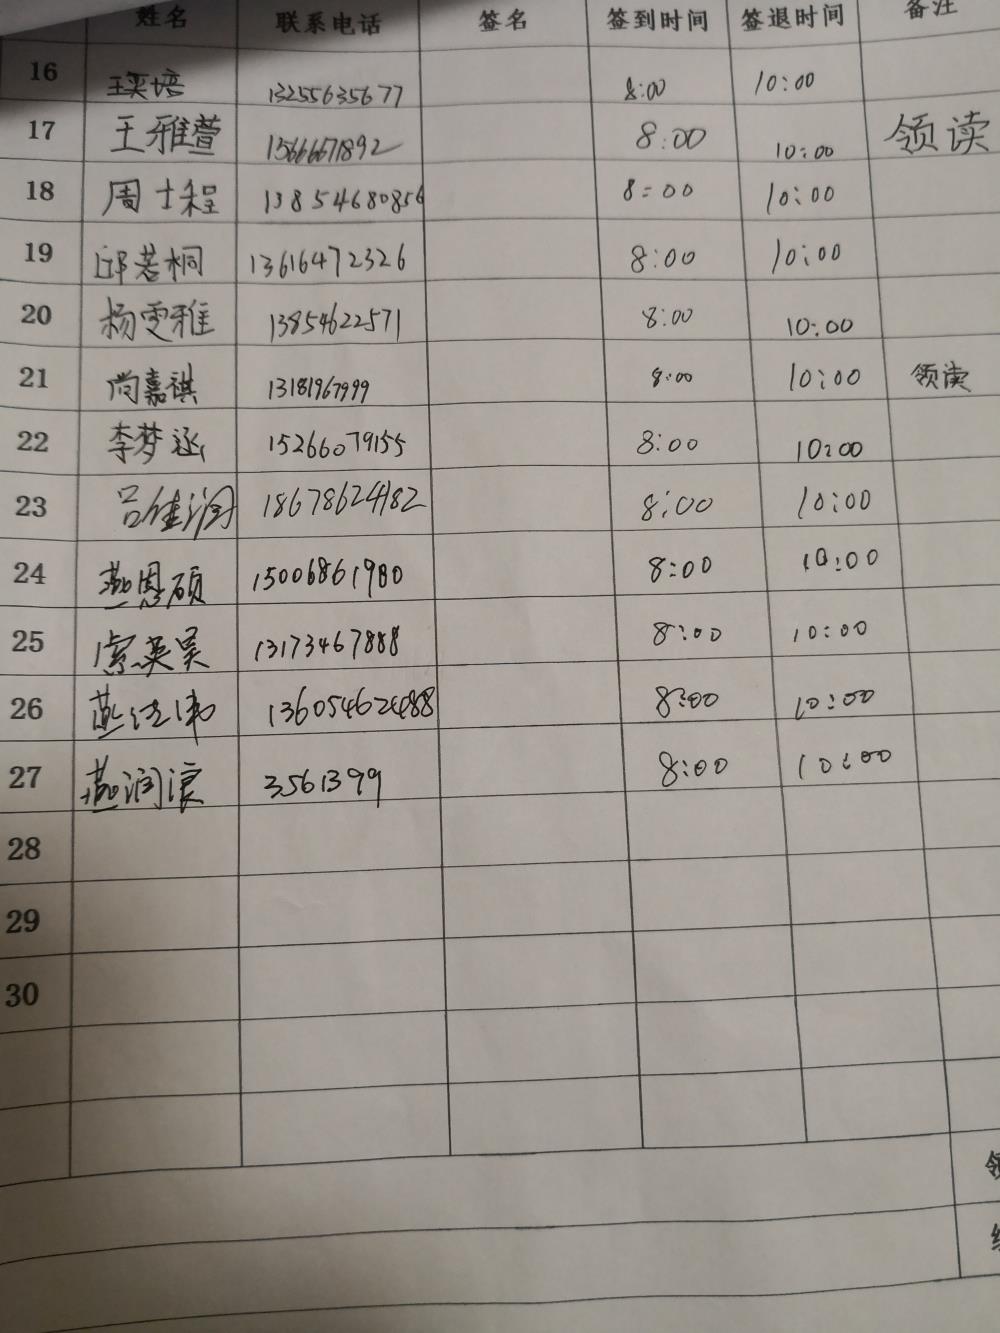 姓名 联系电话 签名 签到时间 签退时间 备注
16 13255635677 8:00 10:00
17 王雅萱 15666671892 8:00 10:00 领读
18 周士程 13854680856 8:00 10:00
19 邱若桐 13616472326 8:00 10:00
20 杨雯雅 13854622571 8:00 10:00
21 尚嘉祺 13181967999 8:00 10:00 领读
22 李梦涵 15266079155 8:00 10:00
23 吕佳润 18678624182 8:00 10:00
24 燕恩硕 15006861980 8:00 10:00
25 13173467888 8:00 10:00
26 13605462488 8:00 10:00
27 燕润浪 3561399 8:00 10:00
28
29
30